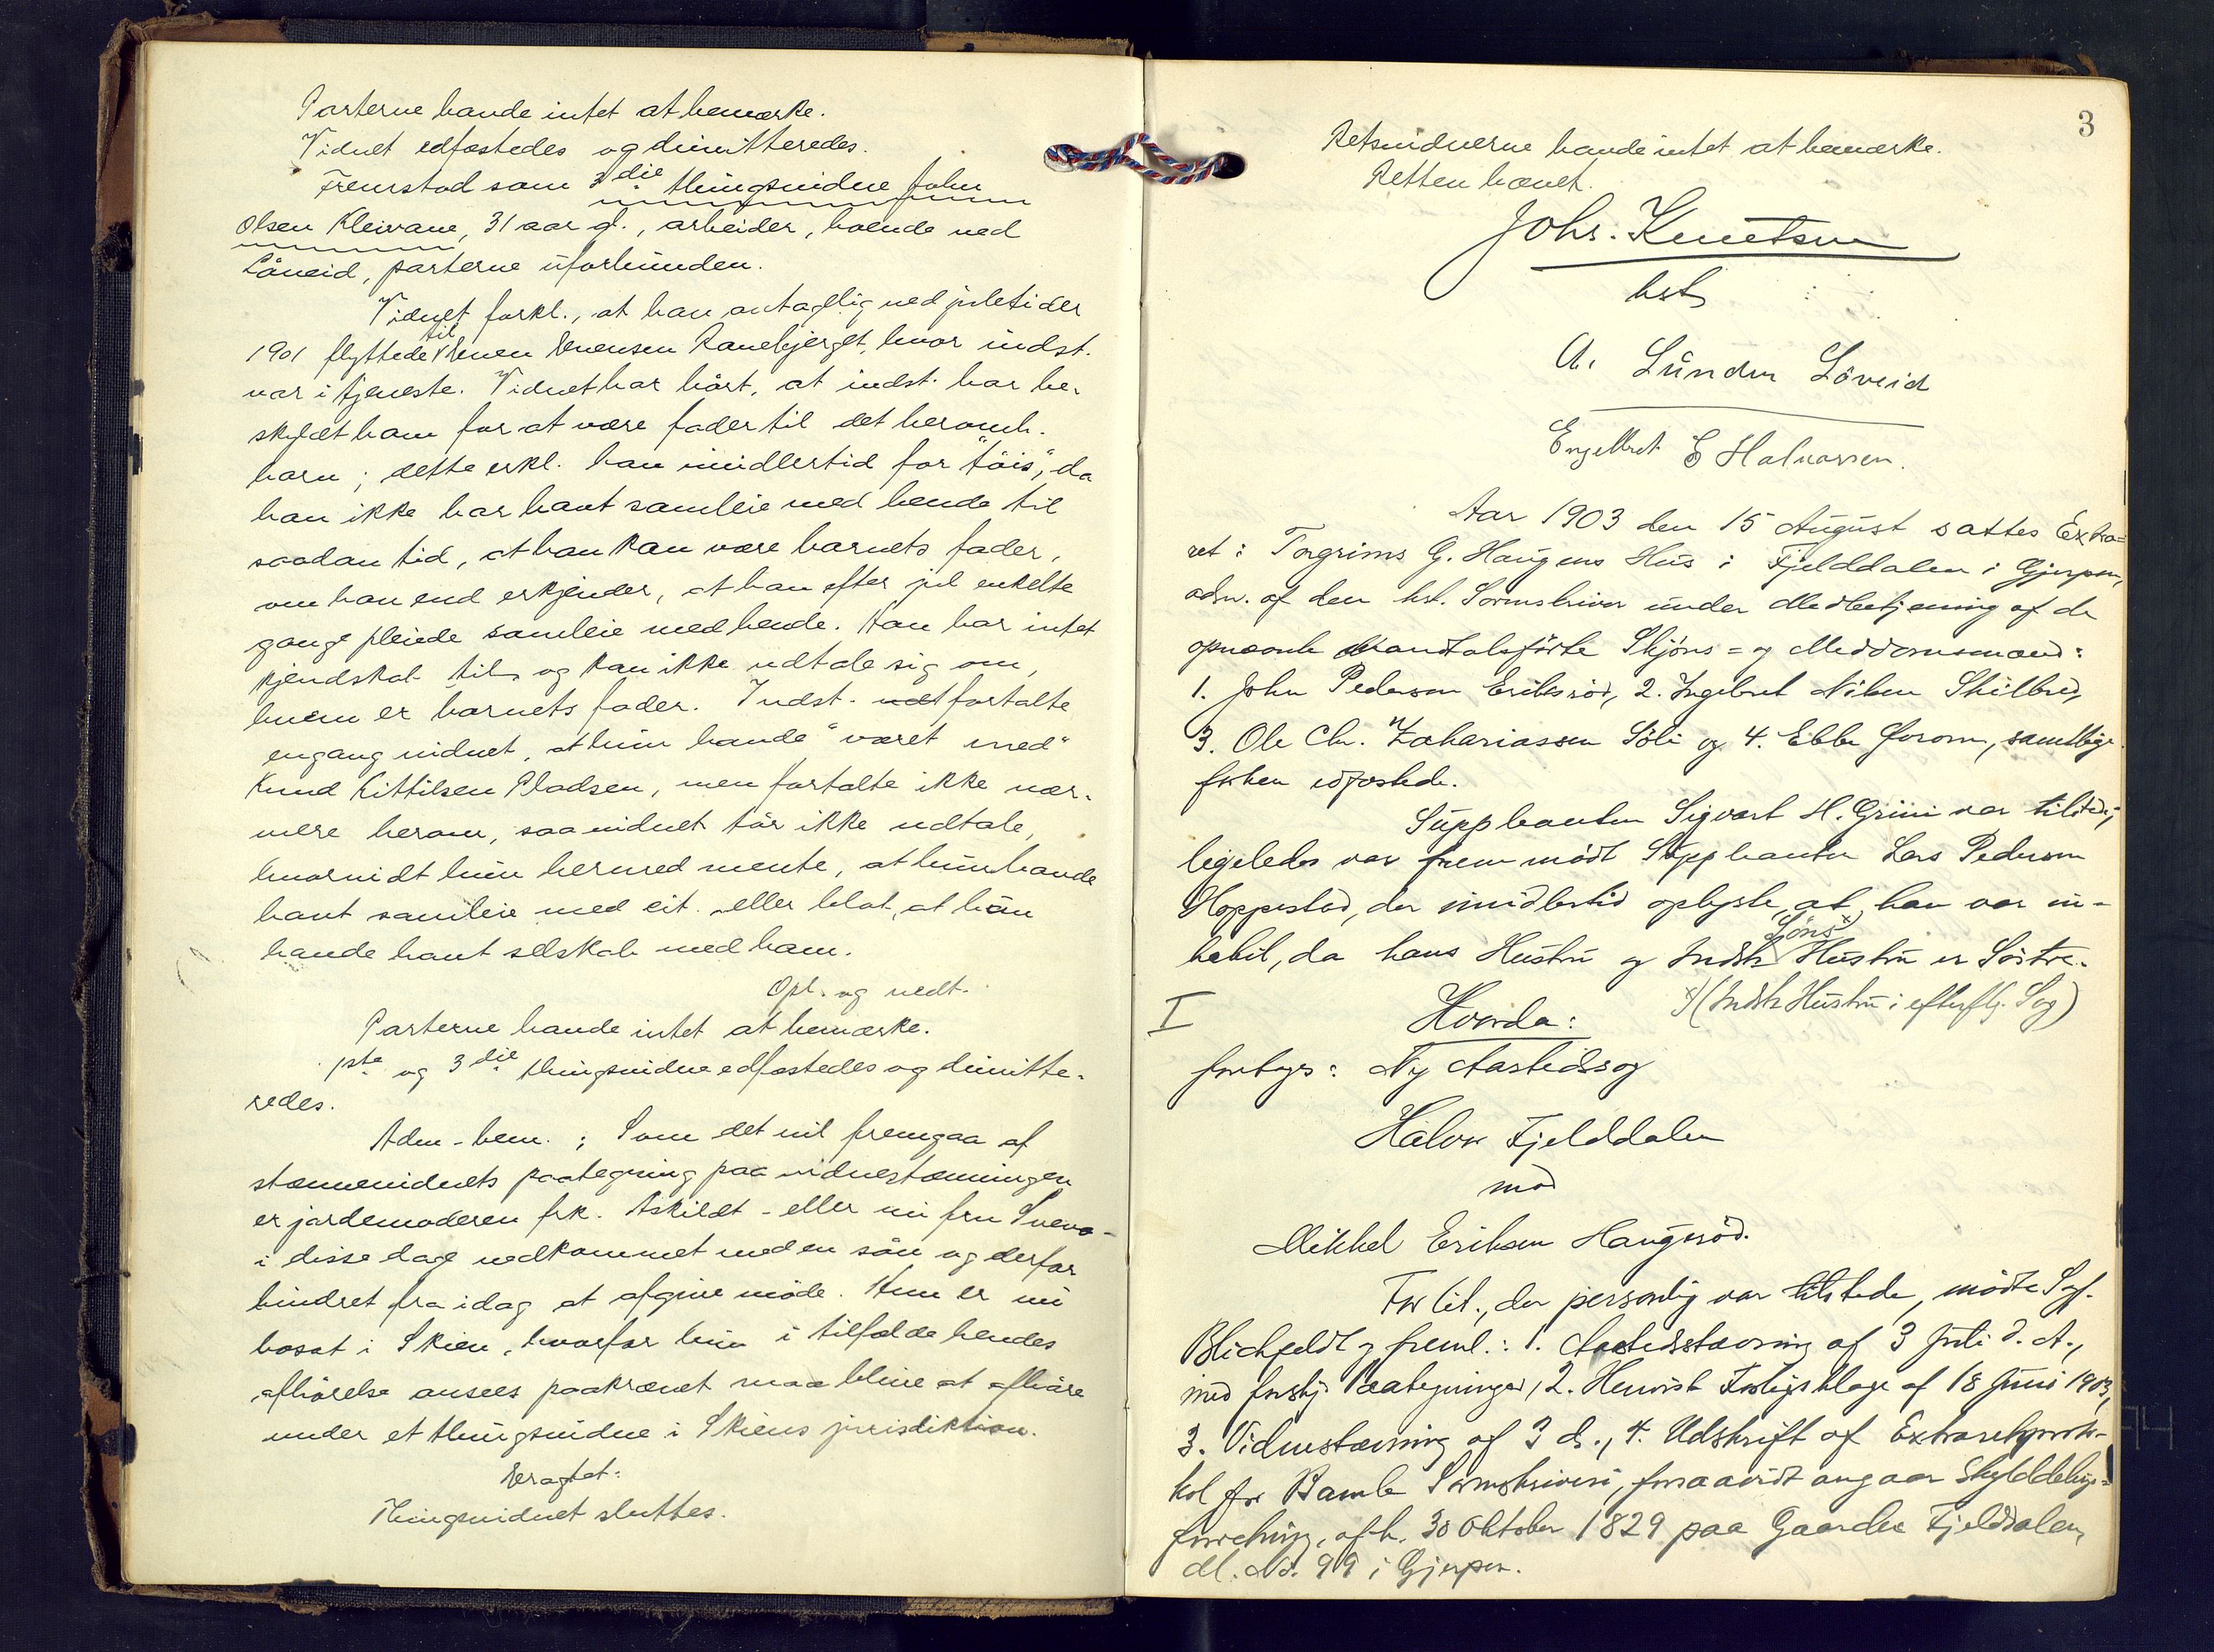 Parterne havde intet at bemærke.
Vidnet edfæstedes og dimitteredes.
Fremstod som 3die thingsvidne John
Olsen Kleivane, 31 aar gl., arbeider, boende ved
Løveid, parterne uforbunden.
Vidnet forkl., at han antagelig ved juletider
1901 flyttede til Evensen Ranebjerget, hvor indst.
var i tjeneste. Vidnet har hørt, at indst. har be-
skyldt ham for at være fader til det heromh.
barn; dette erkl. han imidlertid for "töis", da
han ikke har havt samleie med hende til
saadan tid, at han kan være barnets fader,
om han end erkjender, at han efter jul enkelte
gange pleiede samleie med hende. Han har intet
kjendskab til og kan ikke udtale sig om,
hvem er barnets fader. Indst. fortalte
engang vidnet, at hun havde "været med"
Knud Kittilsen Pladsen, men fortalte ikke nær-
mere herom, saa vidnet tör ikke udtale,
hvorvidt hun hermed mente, at hun havde
havt samleie med cit. eller blot, at hun
havde havt selskab med ham.
Opl. og vedt.
Parterne havde intet at bemærke.
1ste og 3die thingsvidne edfæstedes og dimitte-
redes.
Adm. bem.: Som det vil fremgaa af
stævnevidnets paategning paa vidnestævningen
er jordemoderen frk. Askildt - eller nu fru
i disse dage nedkommet med en sön og derfor
hindret fra idag at afgive möde. Hun er nu
bosat i Skien, hvorfor hun i tilfælde hendes
afhörelse ansees paakrævet maa blive at afhöre
under et thingsvidne i Skiens jurisdiktion.
Eragtet:
Thingsvidnet sluttes.
3
Retsvidnerne havde intet at bemærke.
Retten hævet.
Johs. Knutsen
bst.
A. Lunden Löveid
Engelbret E Halvorsen.
Aar 1903 den 15 August sattes Extra=
ret i Torgrims G. Haugens Hus i Fjelddalen i Gjerpen,
adm. af den bst. Sorenskriver under Medbetjening af de
opnævnte mandtalsförte Skjöns= og Meddomsmænd:
1. John Pedersen Eriksröd, 2. Ingebret Nilsen Skilbred,
3. Ole Chr. Zakariassen Söli og 4. Ebbe Jorom, samtlige
forhen edfæstede.
Suppleanten Sigvart H. Grini var tilstede;
ligeledes var fremmödt Suppleanten Lars Pedersen
Hoppestad, der imidlertid oplyste, at han var in-
habil, da hans Hustru og Indst. Söns x) Hustru er Söstre.
x) (Indst. Hustru i efterflg. Sag)
I
Hvorda:
foretoges: Ny Aastedssag
Halvor Fjelddalen
mod
Mikkel Eriksen Haugeröd.
For Cit., der personlig var tilstede, mödte Sagf.
Blichfeldt og freml.: 1. Aastedsstævning af 3 Juli d. A.,
med forskj. Paategninger, 2. Henvist Forligsklage af 18 Juni 1903,
3. Vidnestævning af 3 ds., 4. Udskrift af Extraretsproto-
kol for Bamle Sorenskriveri, forsaavidt angaar Skylddelings-
forretning, afh. 30 Oktober 1829 paa Gaarden Fjelddalen,
M. No. 99 i Gjerpen.